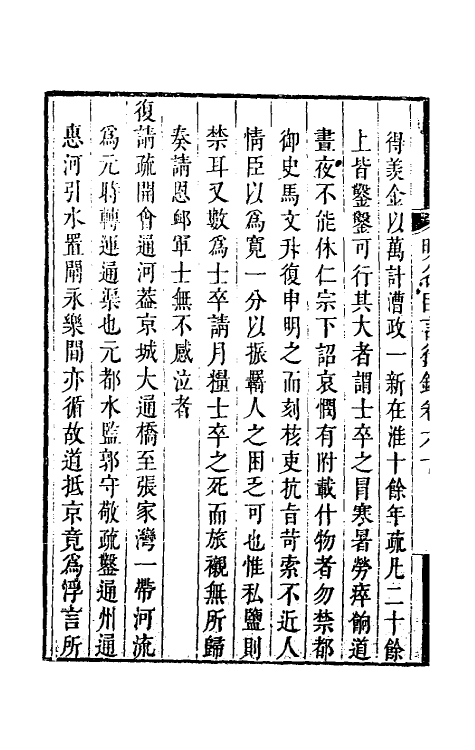 明名臣言行錄卷六十
得羨金以萬計漕政一新在淮十餘年疏凡二十餘
上皆鑿鑿可行其大者謂士卒之冒寒暑勞瘁餉道
晝夜不能休仁宗下詔哀憫有附載什物者勿禁都
御史馬文升復申明之而刻核吏抗旨苛索不近人
情臣以爲寛一分以振羈人之困乏可也惟私鹽則
禁耳又數爲士卒請月糧士卒之死而旅櫬無所歸
奏請恩邺軍士無不感泣者
復請疏開會通河葢京城大通橋至張家灣一帶河流
爲元時轉運通渠也元都水監郭守敬疏鑿通州通
惠河引水置閘永樂間亦循故道抵京竟爲浮言所